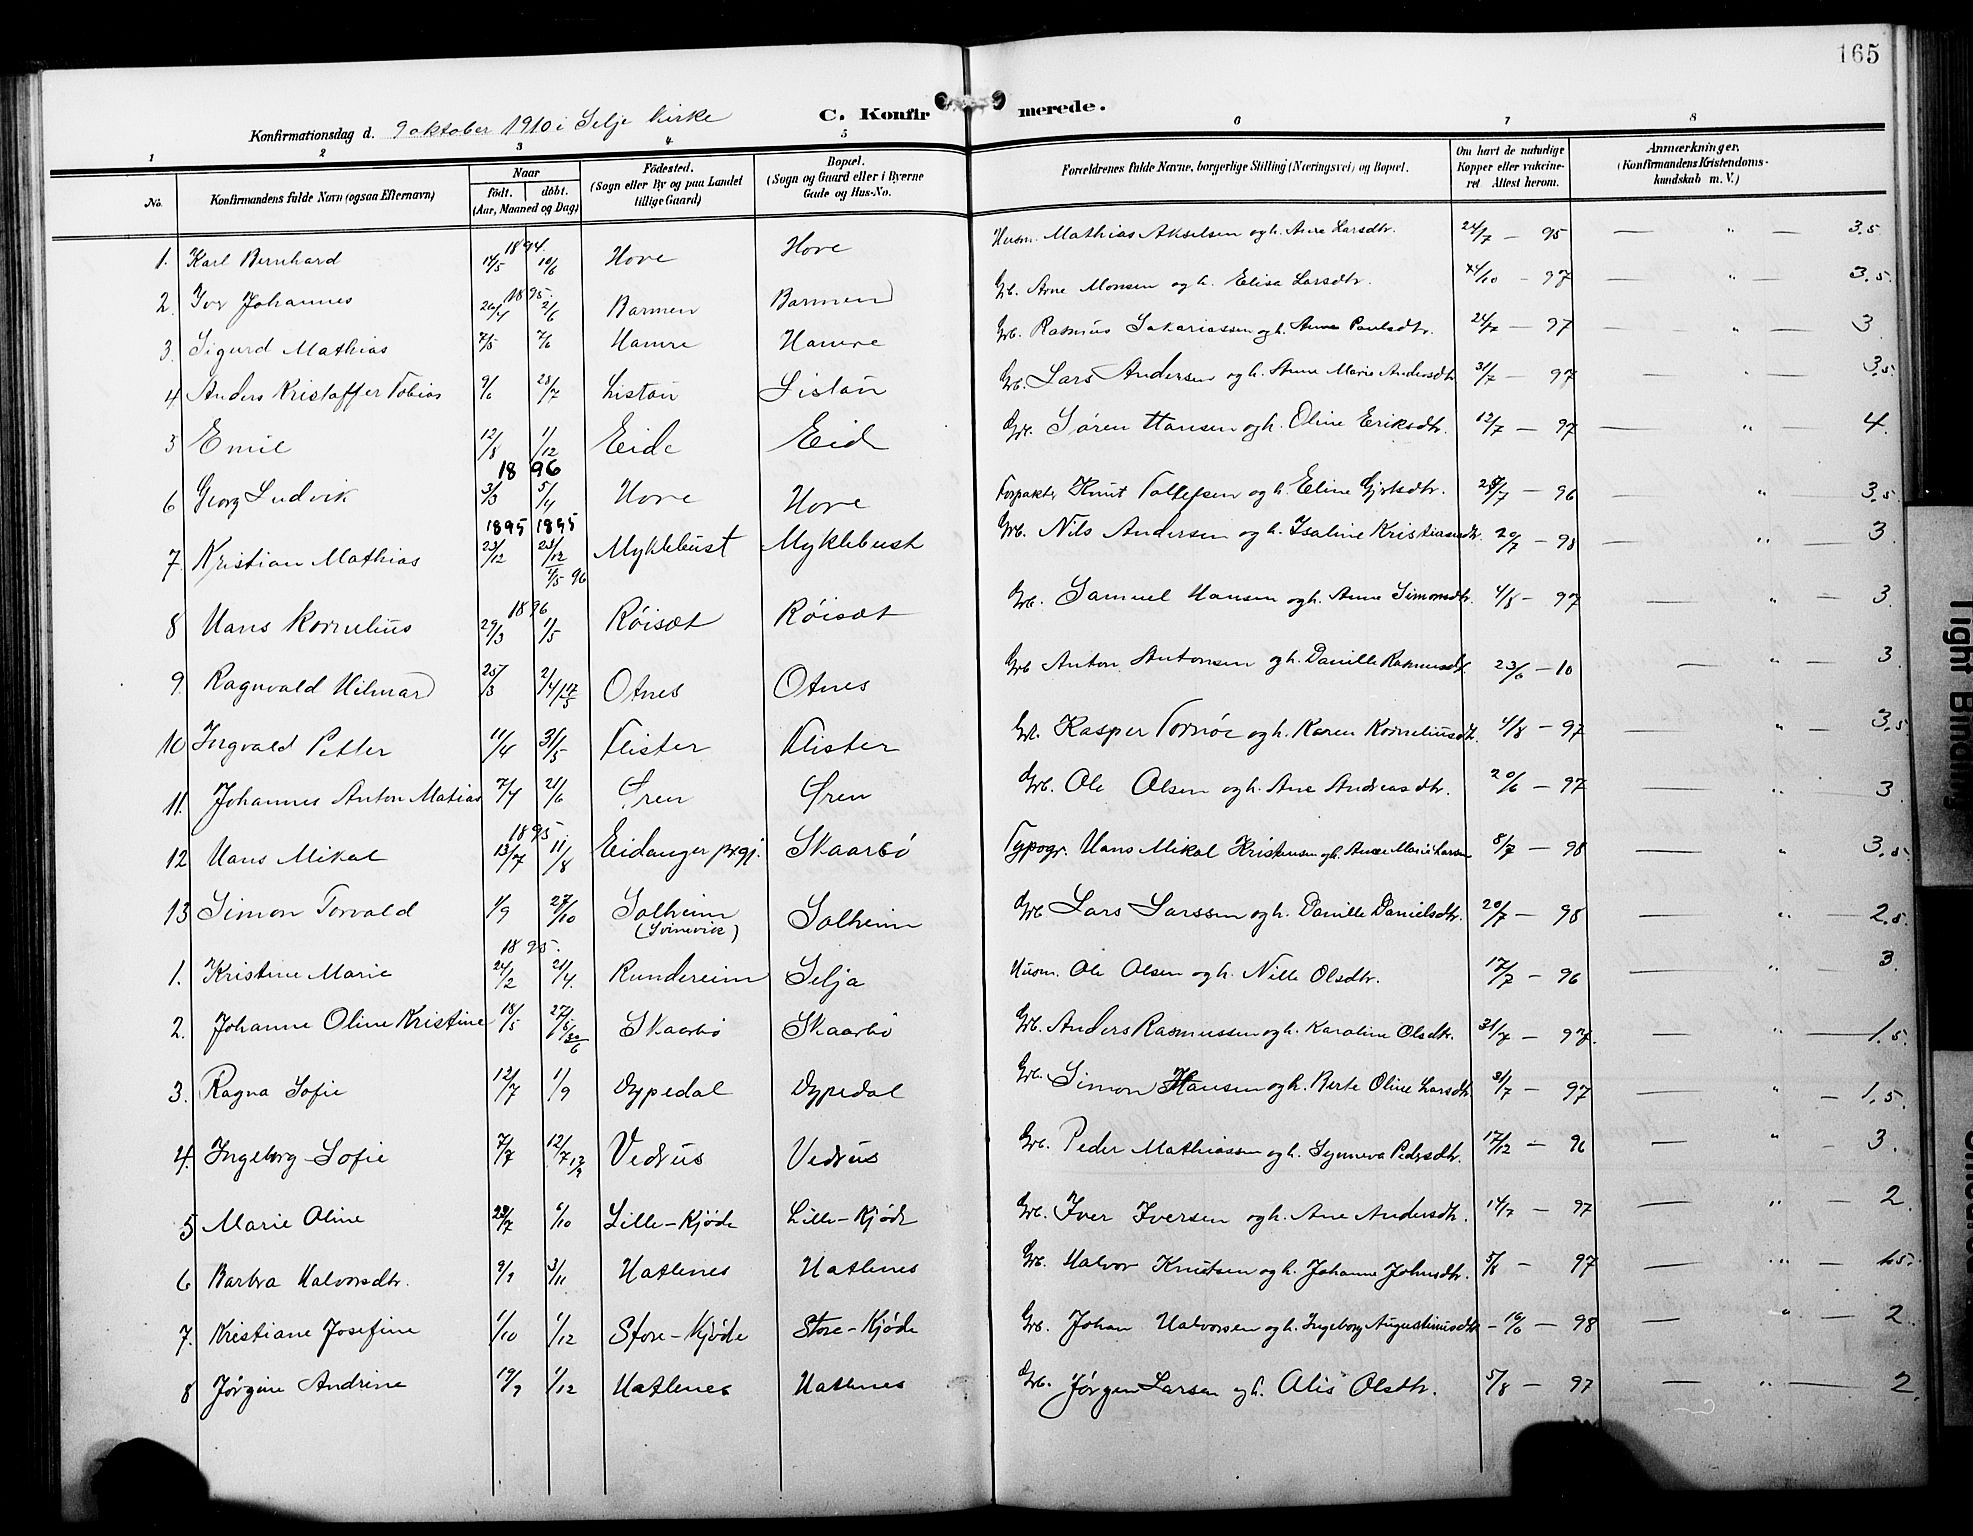 165
Konfirmationsdag d. 9 oktober 1910 i Selje kirke C. Konfirmerede.
1 2 3 4 5 6 7 8
No. Konfirmandens fulde Navn (ogsaa Efternavn) Naar födt. döbt. (Aar, Maaned og Dag) Födested. (Sogn eller By og paa Landet tillige Gaard) Bopæl. (Sogn og Gaard eller i Byerne Gade og Hus-No. Forældrenes fulde Navne, borgerlige Stilling (Næringsvei) og Bopæl. Om havt de naturlige Kopper eller vakcineret Attest herom. Anmærkninger. (Konfirmandens Kristendomskundskab m. V.)
1894.
1. Karl Bernhard 14/5 10/6 Hove Hove Husm. Mathias Akselsen og h. Anne Larsdtr. 24/7 — 95 — " — 3.5
1895.
2. Ivar Johannes 26/4 2/6 Barmen Barmen Grb. Arne Monsen og h. Elisa Larsdtr. /10 - 97 — " — 3.5.
3. Sigurd Mathias 7/5 7/6 Hamre Hamre Grb. Rasmus Sakariassen og h. Anne Paulsdtr. 24/7 — 97 — " — 3
4 Anders Kristoffer Tobias 9/6 28/7 Listau Listau Grb. Lars Andersen og h. Anne Marie Andersdtr 31/7 — 97 — " — 3.5
5 Emil 12/8 1/12 Eide Eid Grb. Søren Hansen og h. Oline Eriksdtr. 12/7 — 97 — " — 4.
1896
6 Georg Ludvik 3/3 5/4 Hove Hove Forpakter Knut Tollefsen og h. Eline Gjertsdtr. 28/7 — 96 — " — 3.5
1895 1895
7. Kristian Mathias 23/12 23/12 Myklebust Myklebust Grb. Nils Andersen og h. Isaline Kristiansdtr. 20/7 — 98 — " — 3.
/5 96
1896
8 Hans Kornelius 29/3 1/5 Røisæt Røisæt Grb. Samuel Hansen og h. Anne Simonsdtr. 4/8 - 97 — " — 3.
9. Ragnvald Hilmar 25/3 2/4 17/5 Otnes Otnes Grb Anton Antonsen og h. Danille Rasmusdt. 23/6 — 10 — " — 3.
10 Ingvald Petter 11/4 31/5 Flister Flister Grb. Kasper Tornøe og h. Karen Korneliusdt. 4/8 — 97 — " — 3.5
11. Johannes Anton Matias 7/4 21/6 Øren Øren Grb. Ole Olsen og h. Ane Andreasdtr. 20/6 — 97 — " — 3
1895
12 Hans Mikal 13/7 11/8 Eidanger prgj. Skaarbø Typogr. Hans Mikal Kristensen og h. Anne Marie Larsen 8/7 — 98 — " — 3.5.
13 Simon Torvald 1/9 27/10 Solheim Solheim Grb Lars Larssen og h. Danille Danielsdtr. 20/7 — 98 — " — 2.5.
(Svinevik)
1895.
1. Kristine Marie 24/2 21/4. Rundereim Selja Husm. Ole Olsen og h. Nille Olsdtr. 17/7 — 96 — " — 3.
2. Johanne Oline Kristine 18/5 27/5 30/6 Skaarbø Skaarbø Grb. Anders Rasmussen og h. Karoline Olsdtr. 31/7 — 97. — " — 1.5.
3. Ragna Sofie 12/7 1/9 Dypedal Dypedal Grb. Simon Hansen og h. Berte Oline Larsdtr 31/7 — 97 — " — 1.5.
4. Ingeborg Sofie 7/7 12/7 Vedvus Vedvus Grb. Peder Mathiassen og h. Synneva Pedersdtr. 17/12 — 96 — " — 3.
5 Marie Oline 23/7 6/10 Lille-Kjøde Lille-Kjøde Grb. Iver Iversen og h. Ane Andersdtr. 14/7 — 97 — " — 2.
6 Barbra Halvorsdtr. 9/9 3/11 Hatlenes Hatlenes Grb. Halvor Knutsen og h. Johanne Johnsdtr. 5/8 — 97 — " —
7. Kristiane Josefine 1/10 1/12 Store-Kjøde Store-Kjøde Grb. Johan Halvorsen og h. Ingeborg Augustinusdtr — 98 — " — 2.
8 Jørgine Andrine 19/9 1/12 Hatlenes Hatlenes Grb. Jørgen Larsen og h. Alis Olsdtr. 5/8 — 97 — " — 2.
Tight Binding